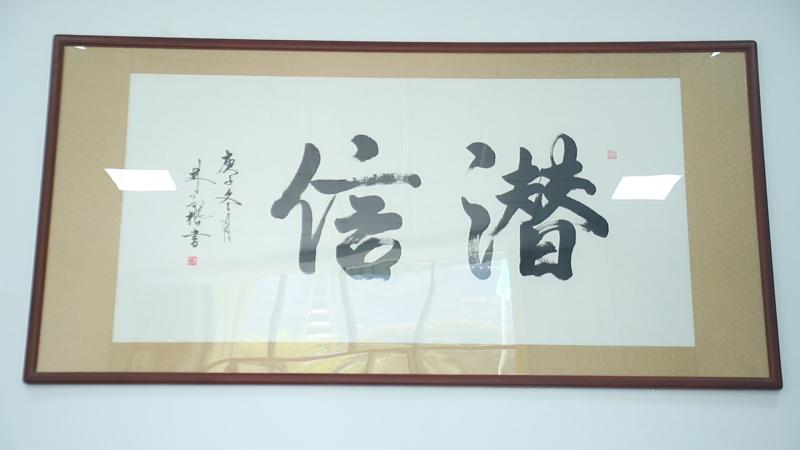 潜信
庚子冬月
书